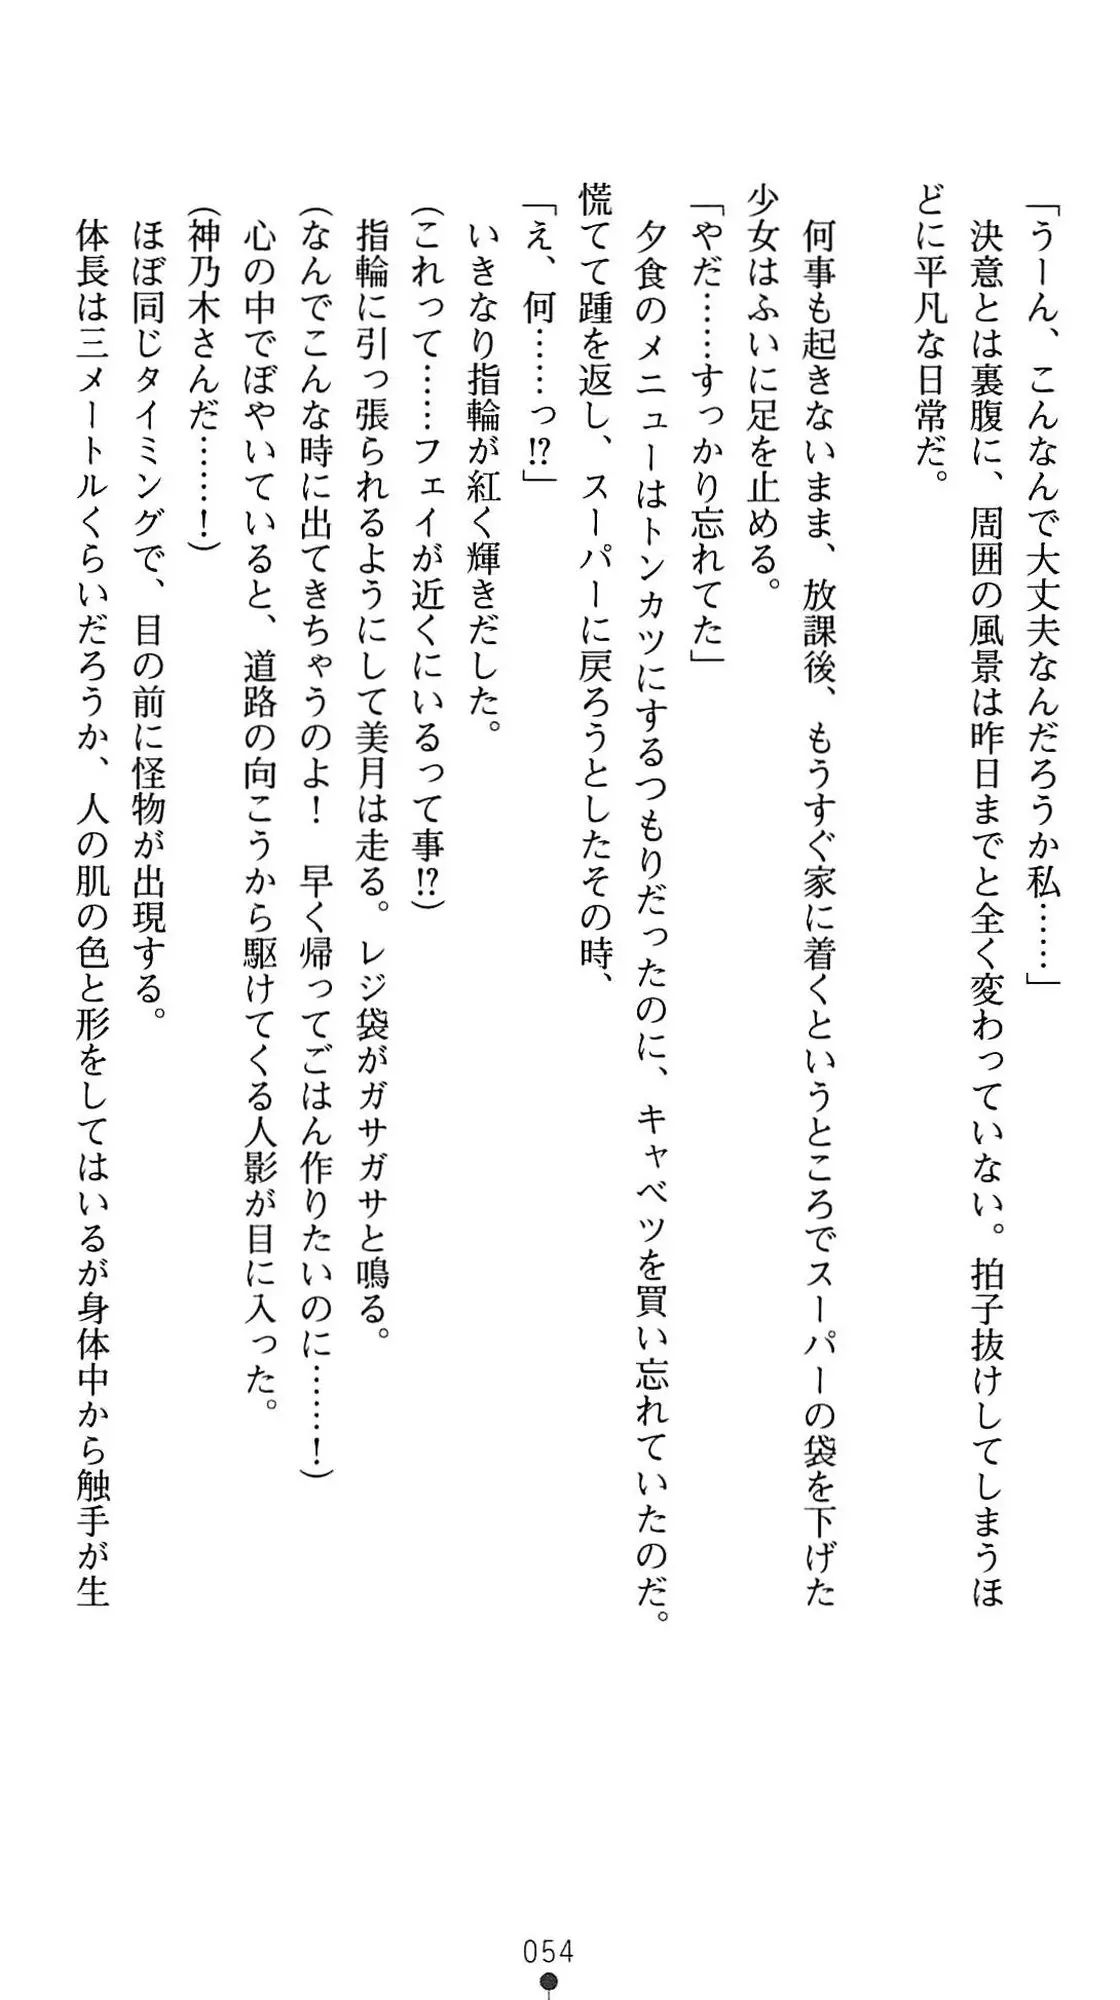 「うーん、こんなんで大丈夫なんだろうか私……」
決意とは裏腹に、周囲の風景は昨日までと全く変わっていない。拍子抜けしてしまうほ
どに平凡な日常だ。
何事も起きないまま、放課後、もうすぐ家に着くというところでスーパーの袋を下げた
少女はふいに足を止める。
「やだ……すっかり忘れてた」
夕食のメニューはトンカツにするつもりだったのに、キャベツを買い忘れていたのだ。
慌てて踵を返し、スーパーに戻ろうとしたその時、
「え、何……っ!?」
いきなり指輪が紅く輝きだした。
(これって……フェイが近くにいるって事!?)
指輪に引っ張られるようにして美月は走る。レジ袋がガサガサと鳴る。
(なんでこんな時に出てきちゃうのよ！　早く帰ってごはん作りたいのに……！)
心の中でぼやいていると、道路の向こうから駆けてくる人影が目に入った。
(神乃木さんだ……！)
ほぼ同じタイミングで、目の前に怪物が出現する。
体長は三メートルくらいだろうか、人の肌の色と形をしてはいるが身体中から触手が生
054